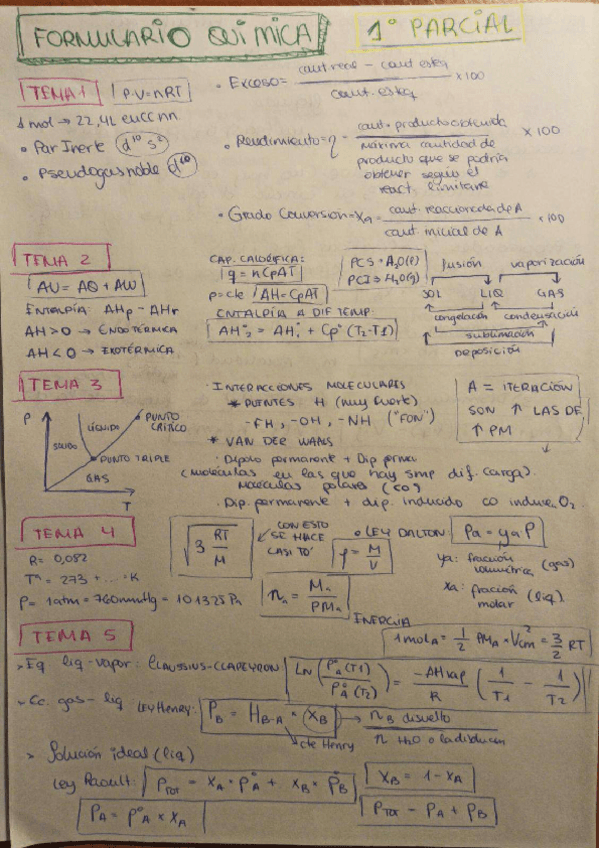 FORMULARIO QUÍMICA
1º PARCIAL
TEMA 1
P·V=nRT
1 mol → 22,4L en CCNN
• Par Inerte d¹⁰ s²
• Pseudogas noble d¹⁰
• EXCESO = cant. reac - cant esteq / cant. esteq x 100
• Rendimiento = η = cant. producto obtenida / máxima cantidad de producto que se podría obtener según el react. limitante x 100
• Grado Conversión = Xa = cant. reaccionada de A / cant. inicial de A x 100
TEMA 2
ΔU = ΔQ + ΔW
ENTALPÍA: ΔHp - ΔHr
ΔH > 0 → ENDOTÉRMICA
ΔH < 0 → EXOTÉRMICA
CAP. CALORÍFICA:
q = nCpΔT
p=cte ΔH=CpΔT
ENTALPÍA A DIF TEMP:
ΔH°₂ = ΔH°₁ + Cp° (T₂-T₁)
PCS → H₂O(l)
PCI → H₂O(g)
fusión vaporización
SOL LIQ GAS
congelación condensación
sublimación
Deposición
TEMA 3
P
LÍQUIDO
SÓLIDO
GAS
T
PUNTO CRÍTICO
PUNTO TRIPLE
• INTERACCIONES MOLECULARES
* PUENTES H (muy fuerte)
-FH, -OH, -NH ("FON")
* VAN DER WAALS
- Dipolo permanente + Dip perma
(moléculas en las que hay smp dif. carga)
Moléculas polares (CO)
• Dip. permanente + dip. inducido CO induce O₂
A = ITERACIÓN
SON ↑ LAS DE
↑ PM
TEMA 4
R= 0,082
Tª = 273 + ... = K
P= 1atm = 760mmHg = 101325 Pa
√3 RT/M
CON ESTO
SE HACE
CASI TO'
• LEY DALTON
Pa = ya P
ρ = M/V
nₐ = Mₐ/PMₐ
ya: fracción volumétrica (gas)
xa: fracción molar (liq)
ENERGIA
1molA = 1/2 PMA · Vcm² = 3/2 RT
TEMA 5
› Eq liq-vapor: CLAUSSIUS-CLAPEYRON
LN (P°A(T1) / P°A(T2)) = -ΔHvap/R (1/T1 - 1/T2)
gas-liq LEY HENRY: PB = HB-A · XB → nB disuelto / n H₂O o la disolucn
cte Henry
› Solución ideal (liq)
Ley Raoult: PTOT = XA · P°A + XB · P°B
XB = 1 - XA
PA = P°A × XA
PTOT = PA + PB